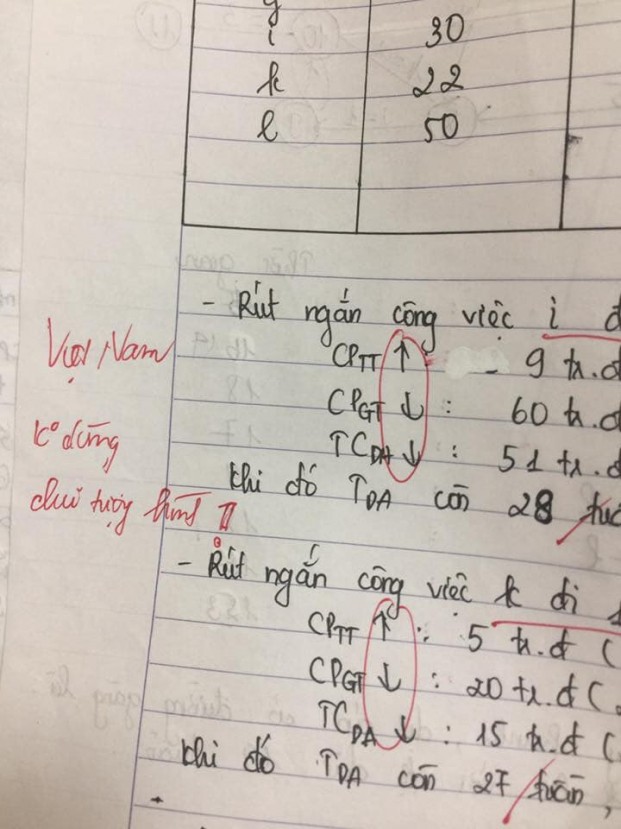 i 30
k 22
l 50
- Rút ngắn công việc i đ
CPTT ↑ - 9 tr.đ
CPGT ↓ : 60 tr.đ
TCDA ↓ : 51 tr.đ
khi đó TDA còn 28
Việt Nam
k° dùng
chữ tượng hình
- Rút ngắn công việc k đi 1
CPTT ↑ : 5 tr.đ (
CPGT ↓ : 20 tr.đ (
TCDA ↓ : 15 tr.đ (
khi đó TDA còn 27 tuần,